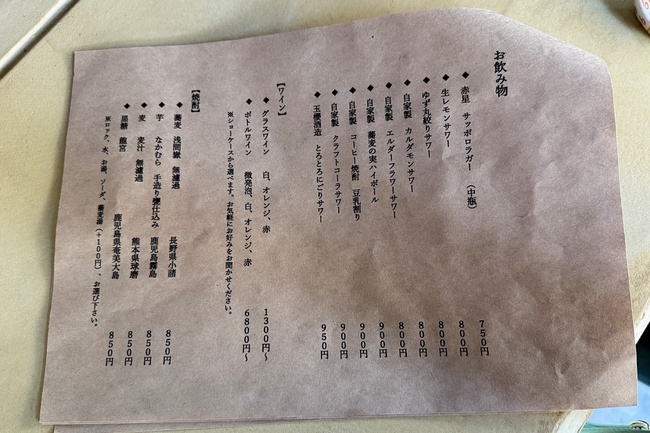 お飲み物
◆ 赤星 サッポロラガー （中瓶） 750円
◆ 生レモンサワー 800円
◆ ゆず丸絞りサワー 800円
◆ 自家製 カルダモンサワー 800円
◆ 自家製 エルダーフラワーサワー 800円
◆ 自家製 蕎麦の実ハイボール 900円
◆ 自家製 コーヒー焼酎 豆乳割り 900円
◆ 自家製 クラフトコーラサワー 900円
◆ 玉櫻酒造 とろとろにごりサワー 950円
【ワイン】
◆ グラスワイン 白、オレンジ、赤 1300円～
◆ ボトルワイン 微発泡、白、オレンジ、赤 6800円～
※ショーケースから選べます。お気軽にお好みをお聞かせください。
【焼酎】
◆ 蕎麦 浅間嶽 無濾過 長野県小諸 850円
◆ 芋 なかむら 手造り甕仕込み 鹿児島霧島 850円
◆ 麦 麦汁 無濾過 熊本県球磨 850円
◆ 黒糖 龍宮 鹿児島県奄美大島 850円
※ロック、水、お湯、ソーダ、蕎麦湯（＋100円）、お選び下さい。